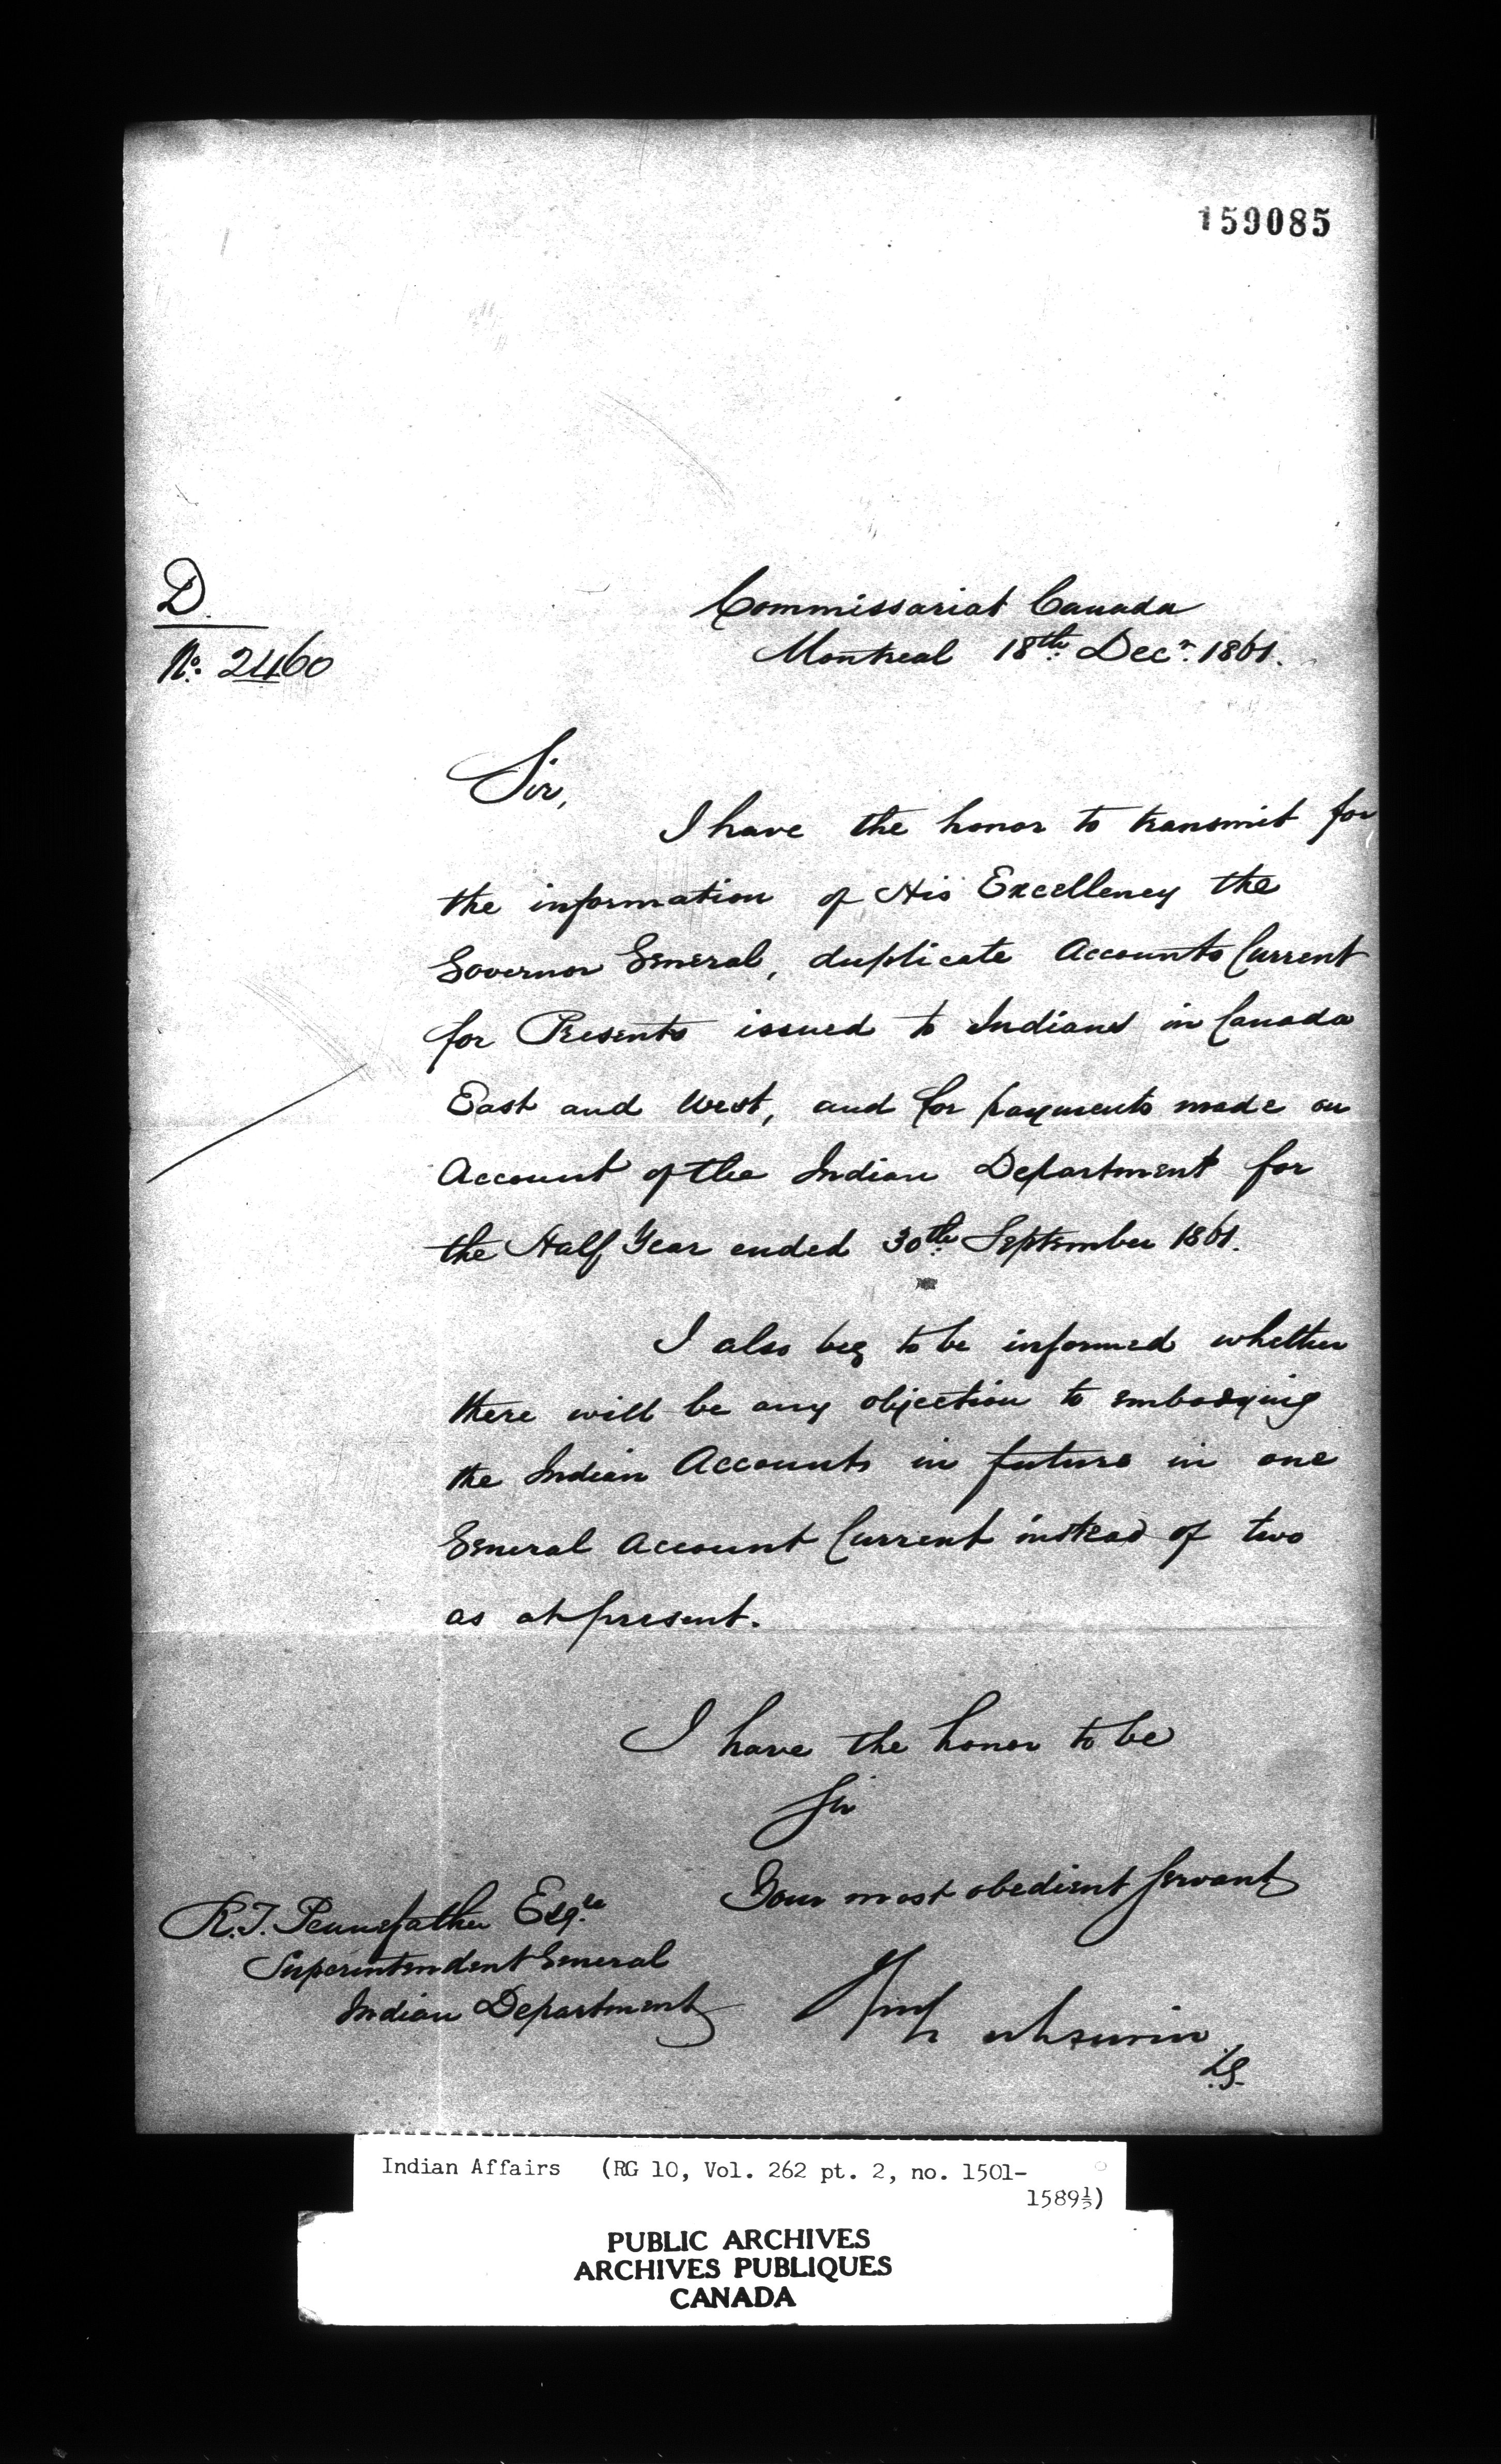 159085
D.
No: 2460
Commissariat Canada
Montreal 18th Decr. 1861.
Sir,
I have the honor to transmit for
the information of His Excellency the
Governor General, duplicate Accounts Current
for Presents issued to Indians in Canada
East and West, and for payments made on
Account of the Indian Department for
the Half Year ended 30th September 1861.
I also beg to be informed whether
there will be any objection to embodying
the Indian Accounts in future in one
General Account Current instead of two
as at present.
I have the honor to be
Sir
Your most obedient Servant
R.T. Pennefather Esqre
Superintendent General
Indian Department
Indian Affairs (RG 10, Vol. 262 pt. 2, no. 1501-
1589½)
PUBLIC ARCHIVES
ARCHIVES PUBLIQUES
CANADA